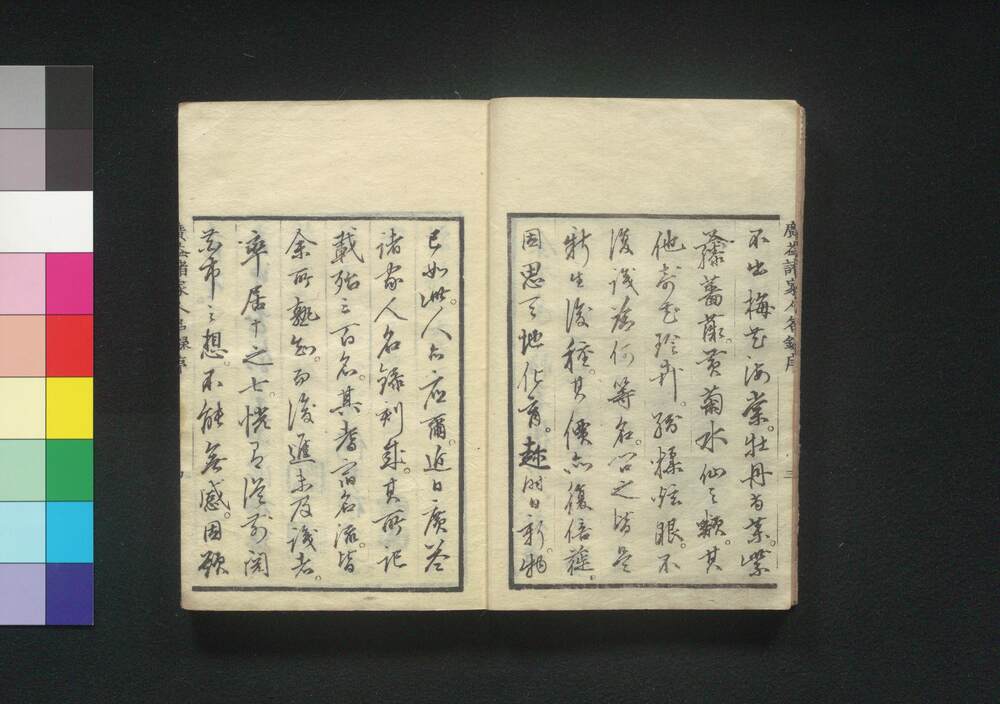 不出梅花海棠。牡丹芍葯。紫
藤薔薇。黄菊水仙之類。其
他奇花珍卉。
復識為何等名。問之皆是
新生後種。其價亦復倍蓰。
因思天地化育。趂時日新。物
已如此。人亦應爾。近日廣益
諸家人名録刻成。其所記
載殆三百名。其耆宿名流。皆
余所熟知。而後進未及識者。
率居十之七。恍有從前閲
花市之想。不能無感。因願
廣益諸家人名録序
廣益諸家人名録序